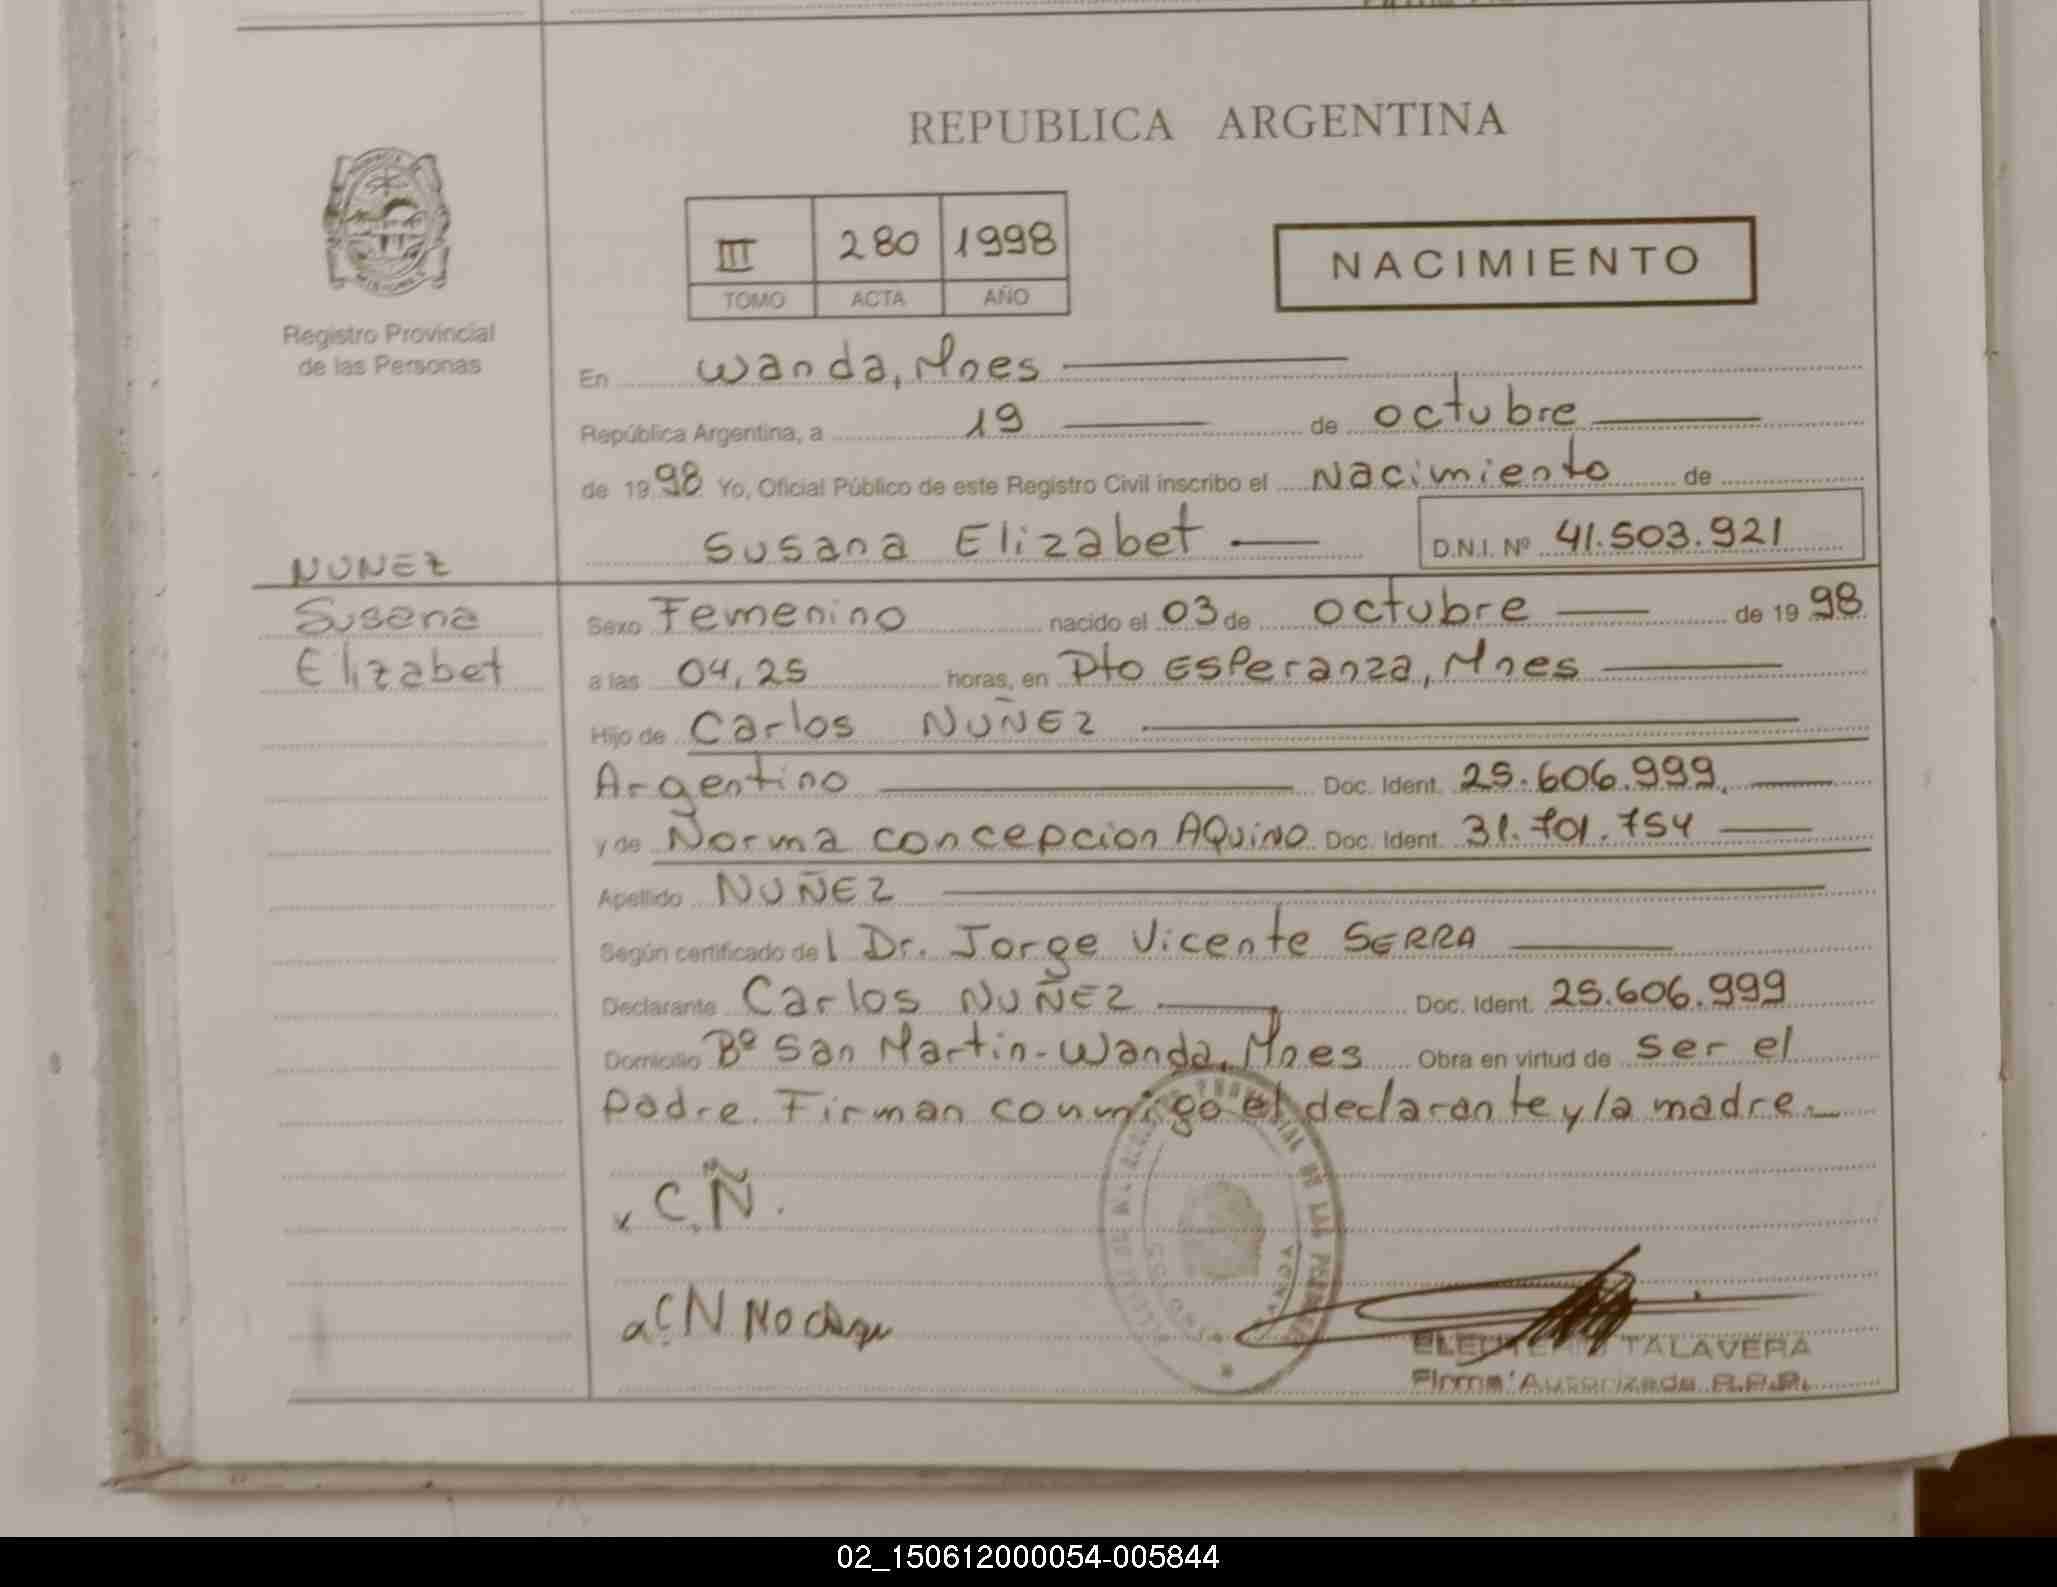 REPUBLICA ARGENTINA
III 280 1998
TOMO ACTA AÑO
NACIMIENTO
Registro Provincial
de las Personas
En Wanda, Mnes
República Argentina, a 19 de octubre
de 1998 Yo, Oficial Público de este Registro Civil inscribo el Nacimiento de
Susana Elizabet D.N.I. Nº 41.503.921
NUNEZ
Susana
Elizabet
Sexo Femenino nacido el 03 de octubre de 1998
a las 04,25 horas, en Pto Esperanza, Mnes
Hijo de Carlos NUÑEZ
Argentino Doc. Ident. 25.606.999
y de Norma concepcion AQUINO Doc. Ident. 31.701.754
Apellido NUÑEZ
Según certificado del Dr. Jorge Vicente SERRA
Declarante Carlos NUÑEZ Doc. Ident. 25.606.999
Domicilio Bº San Martin-Wanda, Mnes Obra en virtud de ser el
padre. Firman conmigo el declarante y la madre.
C.Ñ.
TALAVERA
Firma Autorizada R.P.P.
02_150612000054-005844